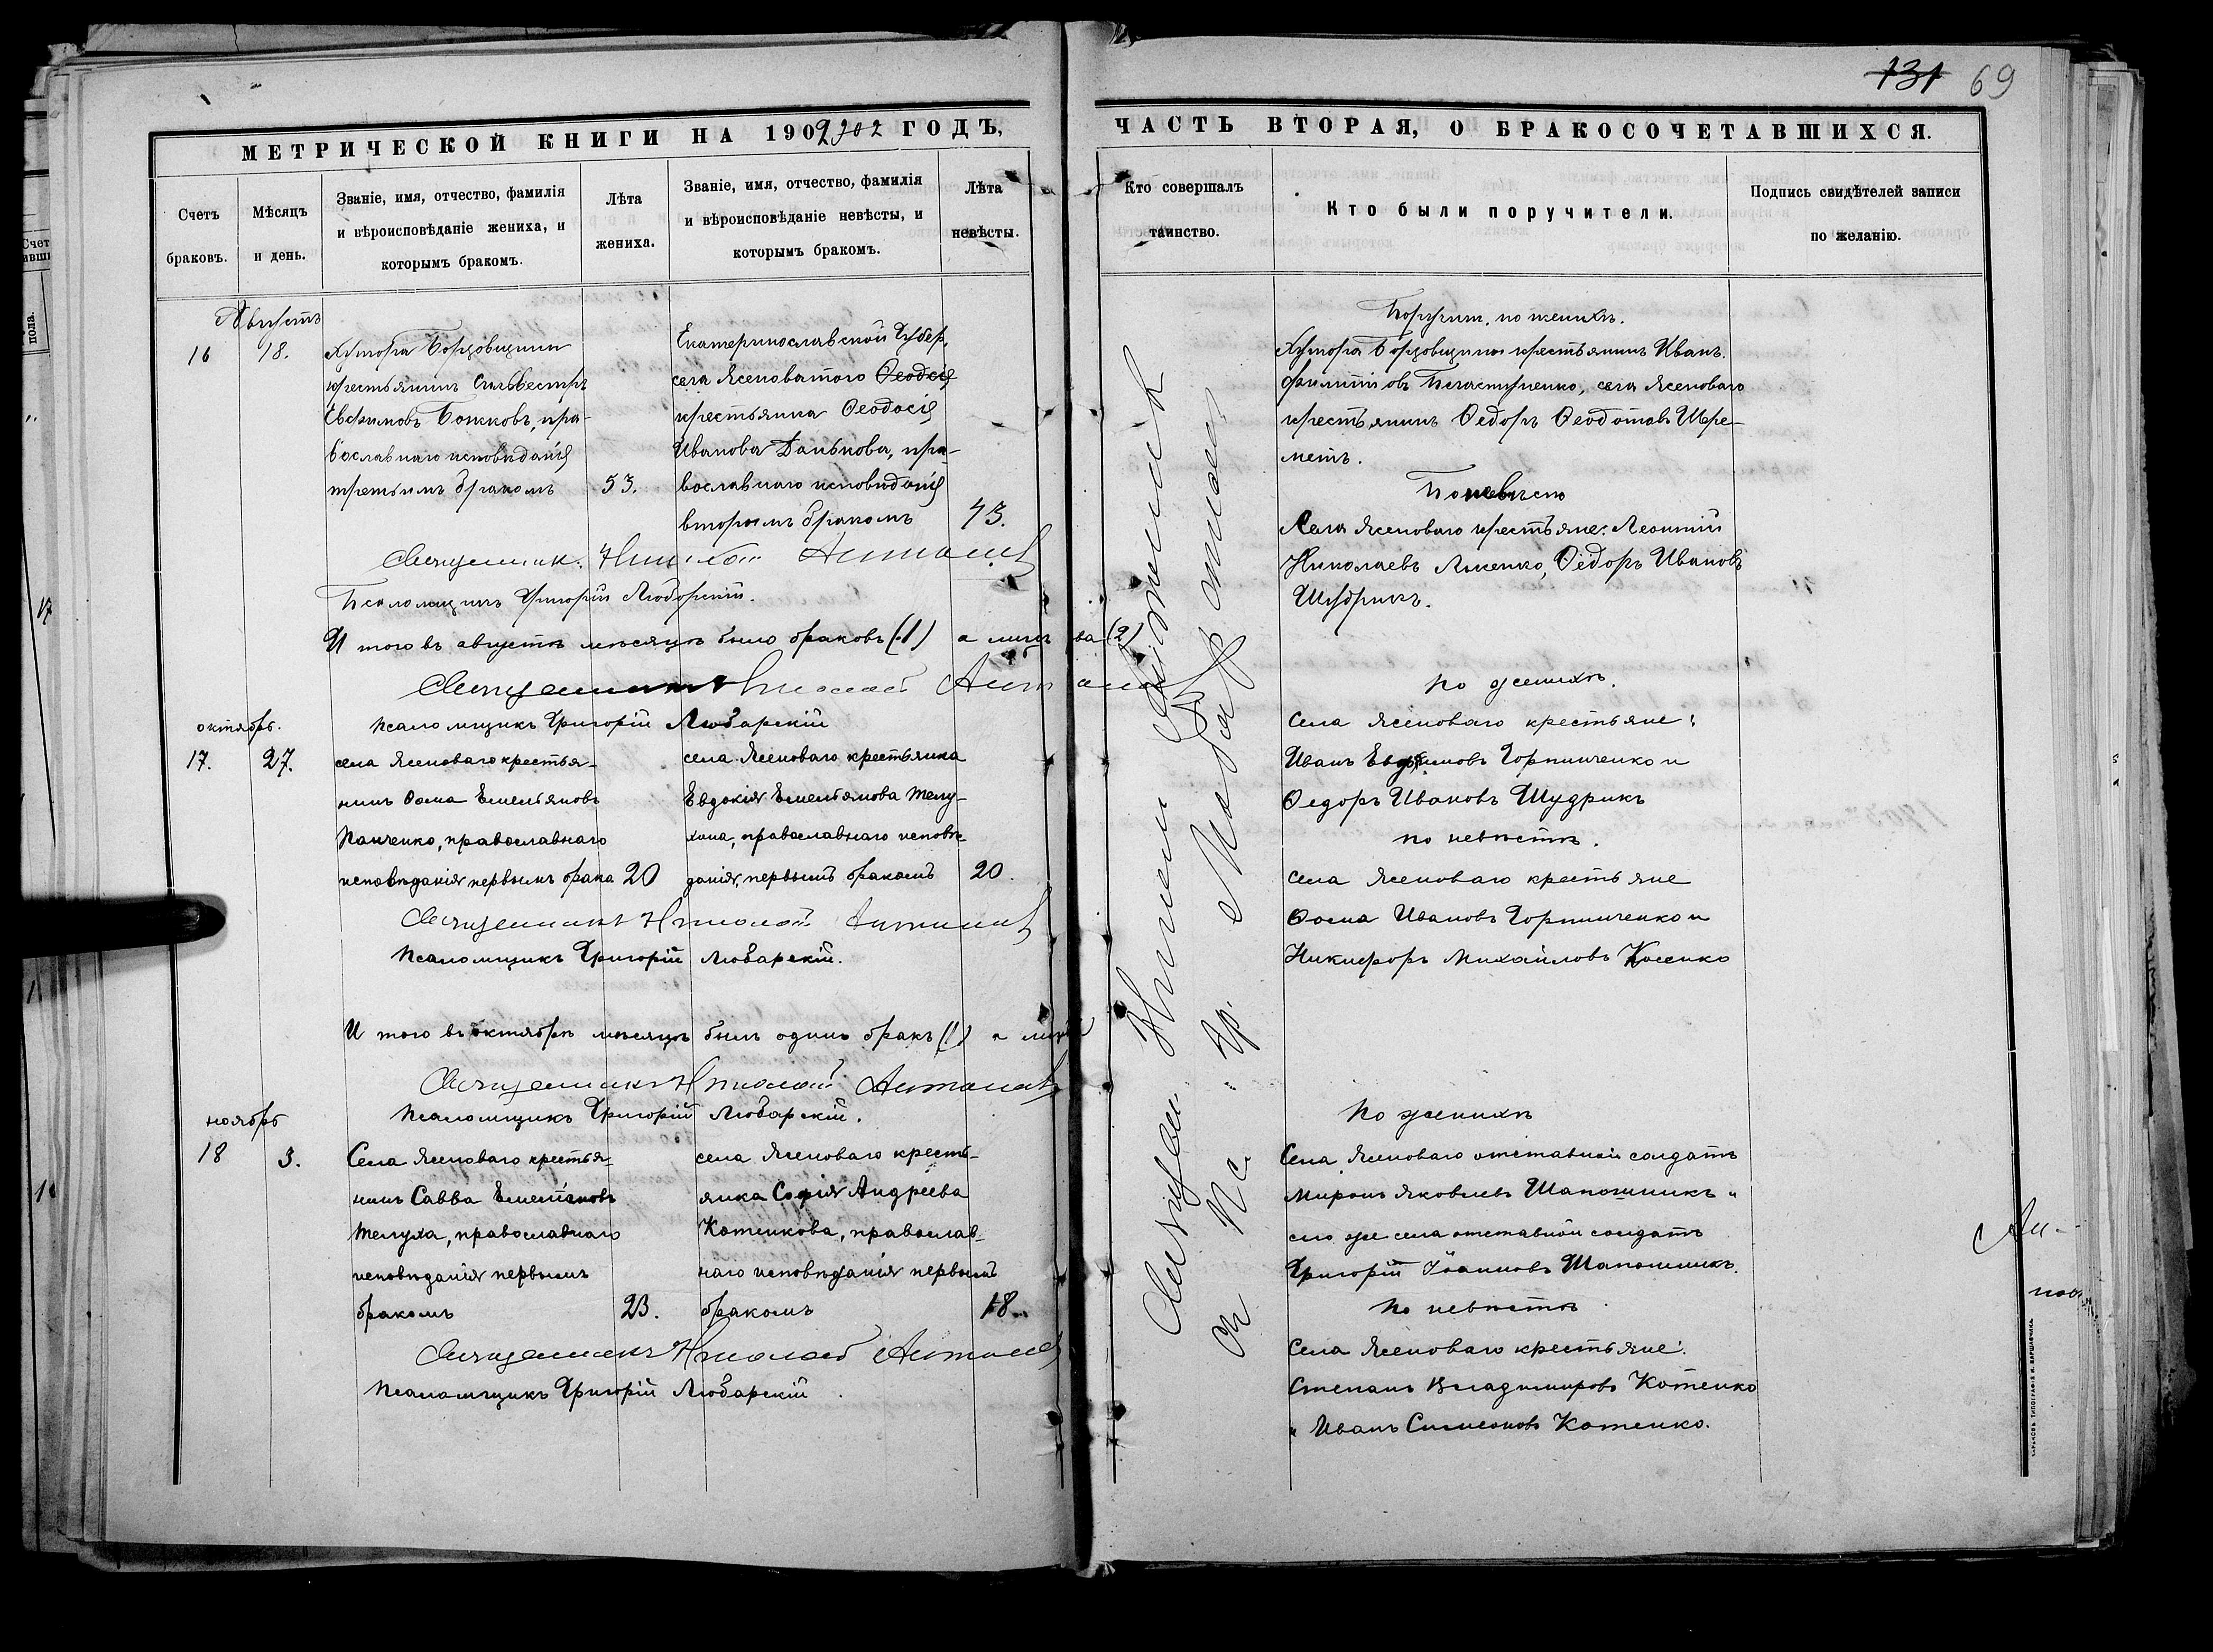 131 69
МЕТРИЧЕСКОЙ КНИГИ НА 1902 ГОДЪ,
Счетъ браковъ.
Мѣсяцъ и день.
Званіе, имя, отчество, фамилія
и вѣроисповѣданіе жениха, и
которымъ бракомъ.
Лѣта жениха.
Званіе, имя, отчество, фамилія
и вѣроисповѣданіе невѣсты, и
которымъ бракомъ.
Лѣта невѣсты.
Августъ
16 18.
Хутора
крестьянинъ Сильвестръ
Евфимовъ Божковъ, пра-
вославнаго исповѣданія
третьимъ бракомъ 53.
Екатеринославской Губер.
села Ясеноватого Ѳеодсія
крестьянка Ѳеодосія
Иванова Данькова, пра-
вославнаго исповѣданія
вторымъ бракомъ 43.
Священник. Николай
Псаломщикъ Григорій Любарскій.
И того въ августѣ мѣсяцѣ было браковъ (1) а лицъ (2)
Священникъ Николай
Псаломщикъ Григорій Любарскій
октябрь.
17. 27.
села Ясеноваго крестья-
нинъ Ѳома Емельяновъ
Панченко, православнаго
исповѣданія первымъ брака 20
села Ясеноваго крестьянка
Евдокія Емельянова Телу-
хина, православнаго исповѣ-
данія, первымъ бракомъ 20.
Священникъ Николай
Псаломщикъ Григорій Любарскій.
И того въ октябрѣ мѣсяцѣ былъ одинъ бракъ (1) а
Священникъ Николай
Псаломщикъ Григорій Любарскій.
ноябрь
18 3.
Села Ясеноваго крестья-
нинъ Савва Емельяновъ
Телуха, православнаго
исповѣданія первымъ
бракомъ 23.
села Ясеноваго кресть-
янка Софія Андреева
Котенкова, православ-
наго исповѣданія первымъ
бракомъ 18.
Священникъ Николай
Псаломщикъ Григорій Любарскій.
ЧАСТЬ ВТОРАЯ, О БРАКОСОЧЕТАВШИХСЯ.
Кто совершалъ таинство.
Кто были поручители.
Подпись свидѣтелей записи
по желанію.
Поручит. по женихѣ.
Хутора крестьянинъ Иванъ
села Ясеноваго
крестьянинъ Ѳедоръ Ѳеодотовъ Шере-
метъ.
По невѣстѣ
Села Ясеноваго крестьяне: Леонтій
Николаевъ Ѳедоръ Ивановъ
Шудрикъ.
По женихѣ.
Села Ясеноваго крестьяне:
Иванъ Евфимовъ Горпинченко и
Ѳедоръ Ивановъ Шудрикъ
по невѣстѣ.
Села Ясеноваго крестьяне
Ѳома Ивановъ Горпинченко и
Никифоръ Михайловъ
По женихѣ
Села Ясеноваго отставной солдатъ
Миронъ Яковлевъ Шапошникъ и
сего же села отставной солдатъ
Григорій Іоанновъ Шапошникъ.
По невѣстѣ
Села Ясеноваго крестьяне:
Степанъ Владимировъ Котенко
и Иванъ Симеоновъ Котенко.